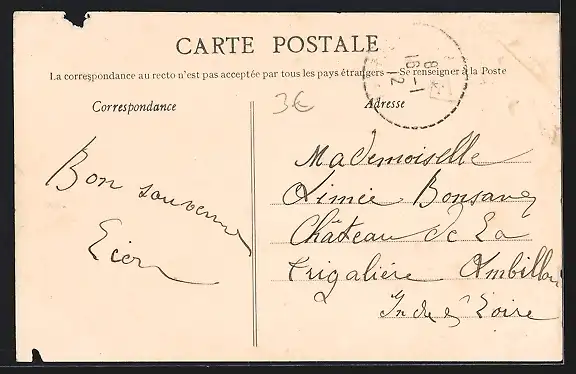 CARTE POSTALE
La correspondance au recto n'est pas acceptée par tous les pays étrangers — Se renseigner à la Poste
Correspondance
3€
Adresse
8 -1
16 12
Bon souvenir
Mademoiselle
Aimée Bonsang
Château de La
Trigalière Ambillou
Indre & Loire